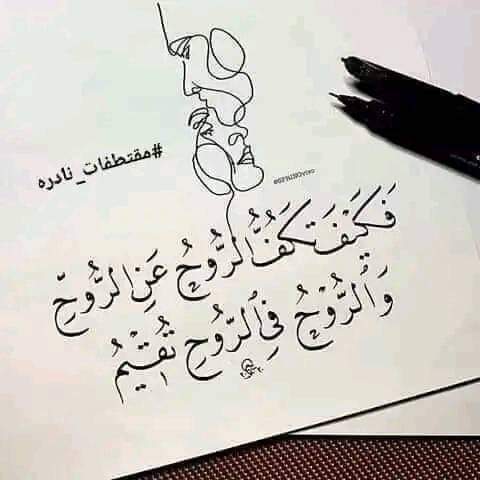 #مقتطفات_نادره
فَكَيْفَ تَكُفُّ الرُّوحُ عَنِ الرُّوحِ
وَالرُّوْحُ فِي الرّوحِ تُقِيْمُ